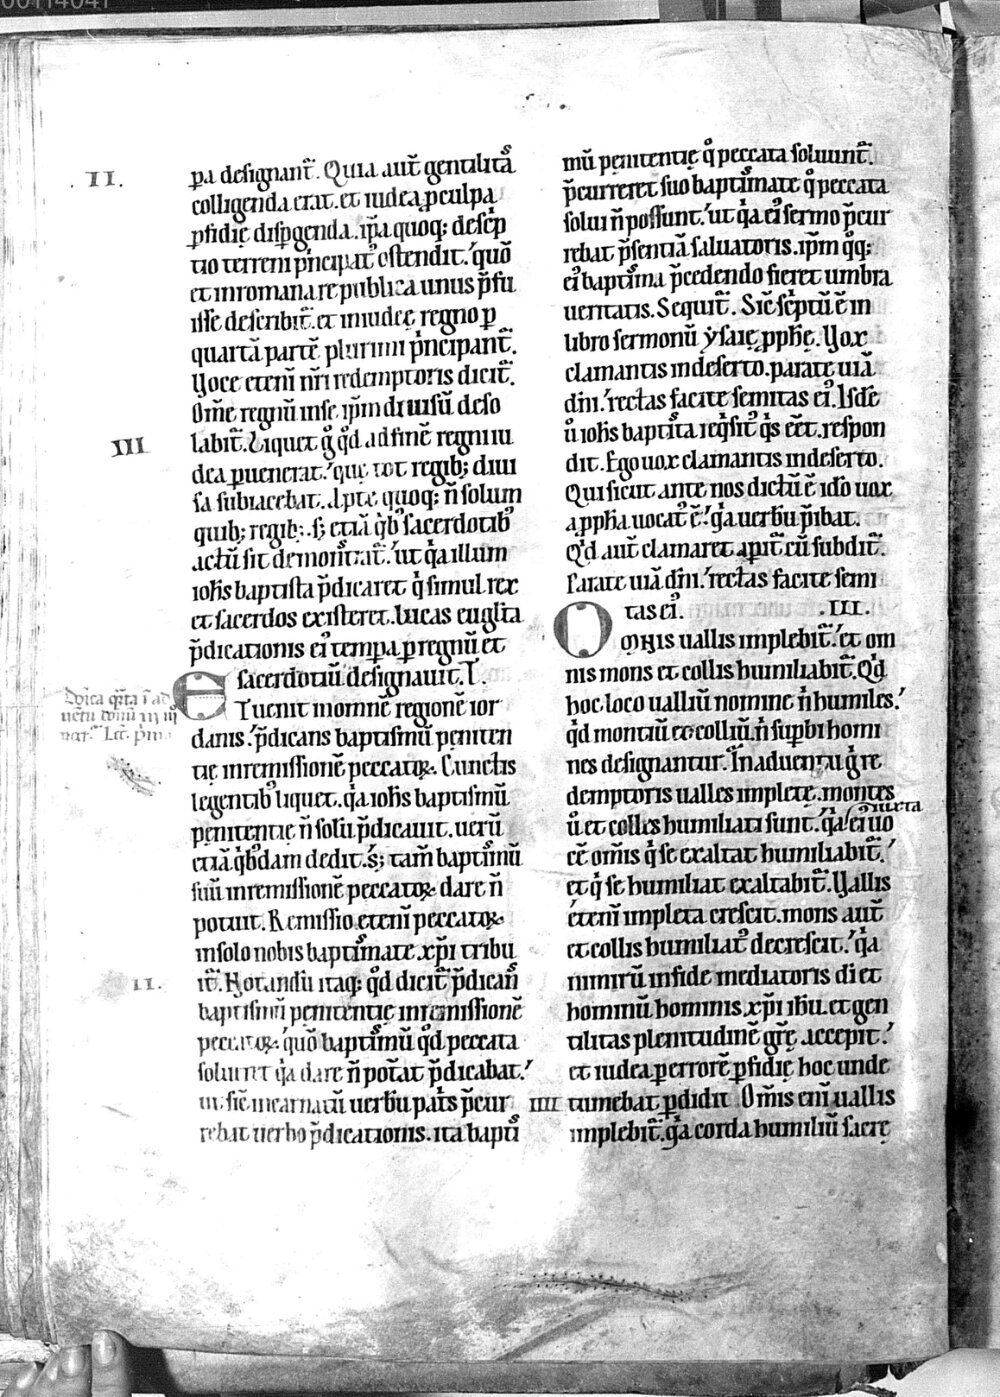 00114041
.II.
pa designant᷑. Quia aut᷑ gentilitaˢ
colligenda erat. et iudea p̱ culpa
p̱fidię disp̱genda. ip̄a quoq; descͥp
tio terreni pͥncipat᷒ ostendit.' quō
et inromana republica unus p̄fu
isse describit᷑. et iniudeę regno p̱
quartā partē plurimi pͥncipant᷑.
Voce etenī nr̄i redemptoris dicit᷑.
Om̄e regnū inse ip̄m diuisū deso
III
labit᷑. Liquet gͦ qd̄ adfinē regni iu
dea p̱uenerat.' quę tot regib; diui
sa subiacebat. Apte quoq; n̄ solum
quib; regib;. s; etiā qͥb᷒ sacerdotib᷒
actū sit demonstrat᷑.' ut qͥa illum
ioh̄s baptista p̄dicaret qͥ simul rex
et sacerdos existeret. lucas euḡlista
p̄dicationis ei᷒ tempa p̱ regnū et
sacerdotiū designauit. T.
Dn̄ica qͣrta ī ad
uentu
Et uenit inomnē regionē ior
danis.' p̄dicans baptismū peniten
tię inremissionē peccatoꝝ. Cunctis
legentib᷒ liquet. qͥa ioh̄s baptismū
penitentię n̄ solū p̄dicauit. uerū
etiā qͥb᷒dam dedit. s; tam̄ baptismū
suū inremissionē peccatoꝝ dare n̄
potuit. Remissio etenī peccatoꝝ
insolo nobis baptismate xp̄i tribu
II.
it᷑. Notandū itaq; qd̄ dicit᷑ p̄dicans
baptismū penitentię inremissionē
peccatoꝝ.' quō baptismū qd̄ peccata
solueret qͥa dare n̄ pot̄at p̄dicabat.'
ut sic̄ incarnatū uerbū patͥs p̄cur
rebat uerbo p̄dicationis. ita bapti
mū penitentię qͦ peccata soluunt᷑.
p̄curreret suo baptismate qͦ peccata
solui n̄ possunt.' ut qͥa ei᷒ sermo p̄cur
rebat p̄sentiā saluatoris. ip̄m qͦq;
ei᷒ baptisma p̄cedendo fieret umbra
ueritatis. Sequit᷑. Sic̄ scͥptū ē in
libro sermonū ẏsaię p̱ph̄ę. Vox
clamantis indeserto. parate uiā
dn̄i.' rectas facite semitas ei᷒. Isdē
u̇ ioh̄s baptista reqͥsit᷒ qͥs eēt. respon
dit. Ego uox clamantis indeserto.
Qui sicut ante nos dictū ē ido uox
a p̱ph̄a uocat᷒ ē.' qͥa uerbū p̄ibat.
Qͥd aut᷑ clamaret ap̱it᷑ cū subdit᷑.
Parate uiā dn̄i.' rectas facite semi
tas ei᷒. .III.
Omnis uallis implebit᷑.' et om
nis mons et collis humiliabit᷑. Qͥd
hoc loco ualliū nomine n̄ humiles.'
qͥd montiū et colliū. n̄ sup̱bi homi
nes designantur. In aduentu gͦ re
demptoris ualles implete. montes
iuxta
u̇ et colles humiliati sunt. qͥa ei᷒ uo
cē om̄is qͥ se exaltat humiliabit᷑.'
et qͥ se humiliat exaltabit᷑. Vallis
etenī impleta crescit. mons aut᷑
et collis humiliat᷒ decrescit.' qͥa
nimirū infide mediatoris di et
hominū hominis xp̄i ih̄u. et gen
tilitas plenitudinē gr̄ę accepit.'
et iudea p̱ errorē p̱fidię hoc unde
IIII tumebat p̱didit. Om̄is enī uallis
implebit᷑. qͥa corda humiliū sacrę